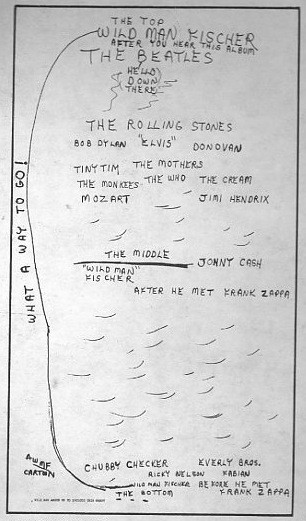 THE TOP
WILD MAN FISCHER
AFTER YOU HEAR THIS ALBUM
THE BEATLES
HELLO
DOWN
THERE
THE ROLLING STONES
BOB DYLAN "ELVIS" DONOVAN
TINY TIM THE MOTHERS
THE MONKEES THE WHO THE CREAM
MOZART JIMI HENDRIX
THE MIDDLE
JONNY CASH
"WILD MAN"
FISCHER
AFTER HE MET FRANK ZAPPA
WHAT A WAY TO GO!
AWMF
CARTOON
CHUBBY CHECKER EVERLY BROS.
RICKY NELSON FABIAN
WILD MAN FISCHER BEFORE HE MET
THE BOTTOM FRANK ZAPPA